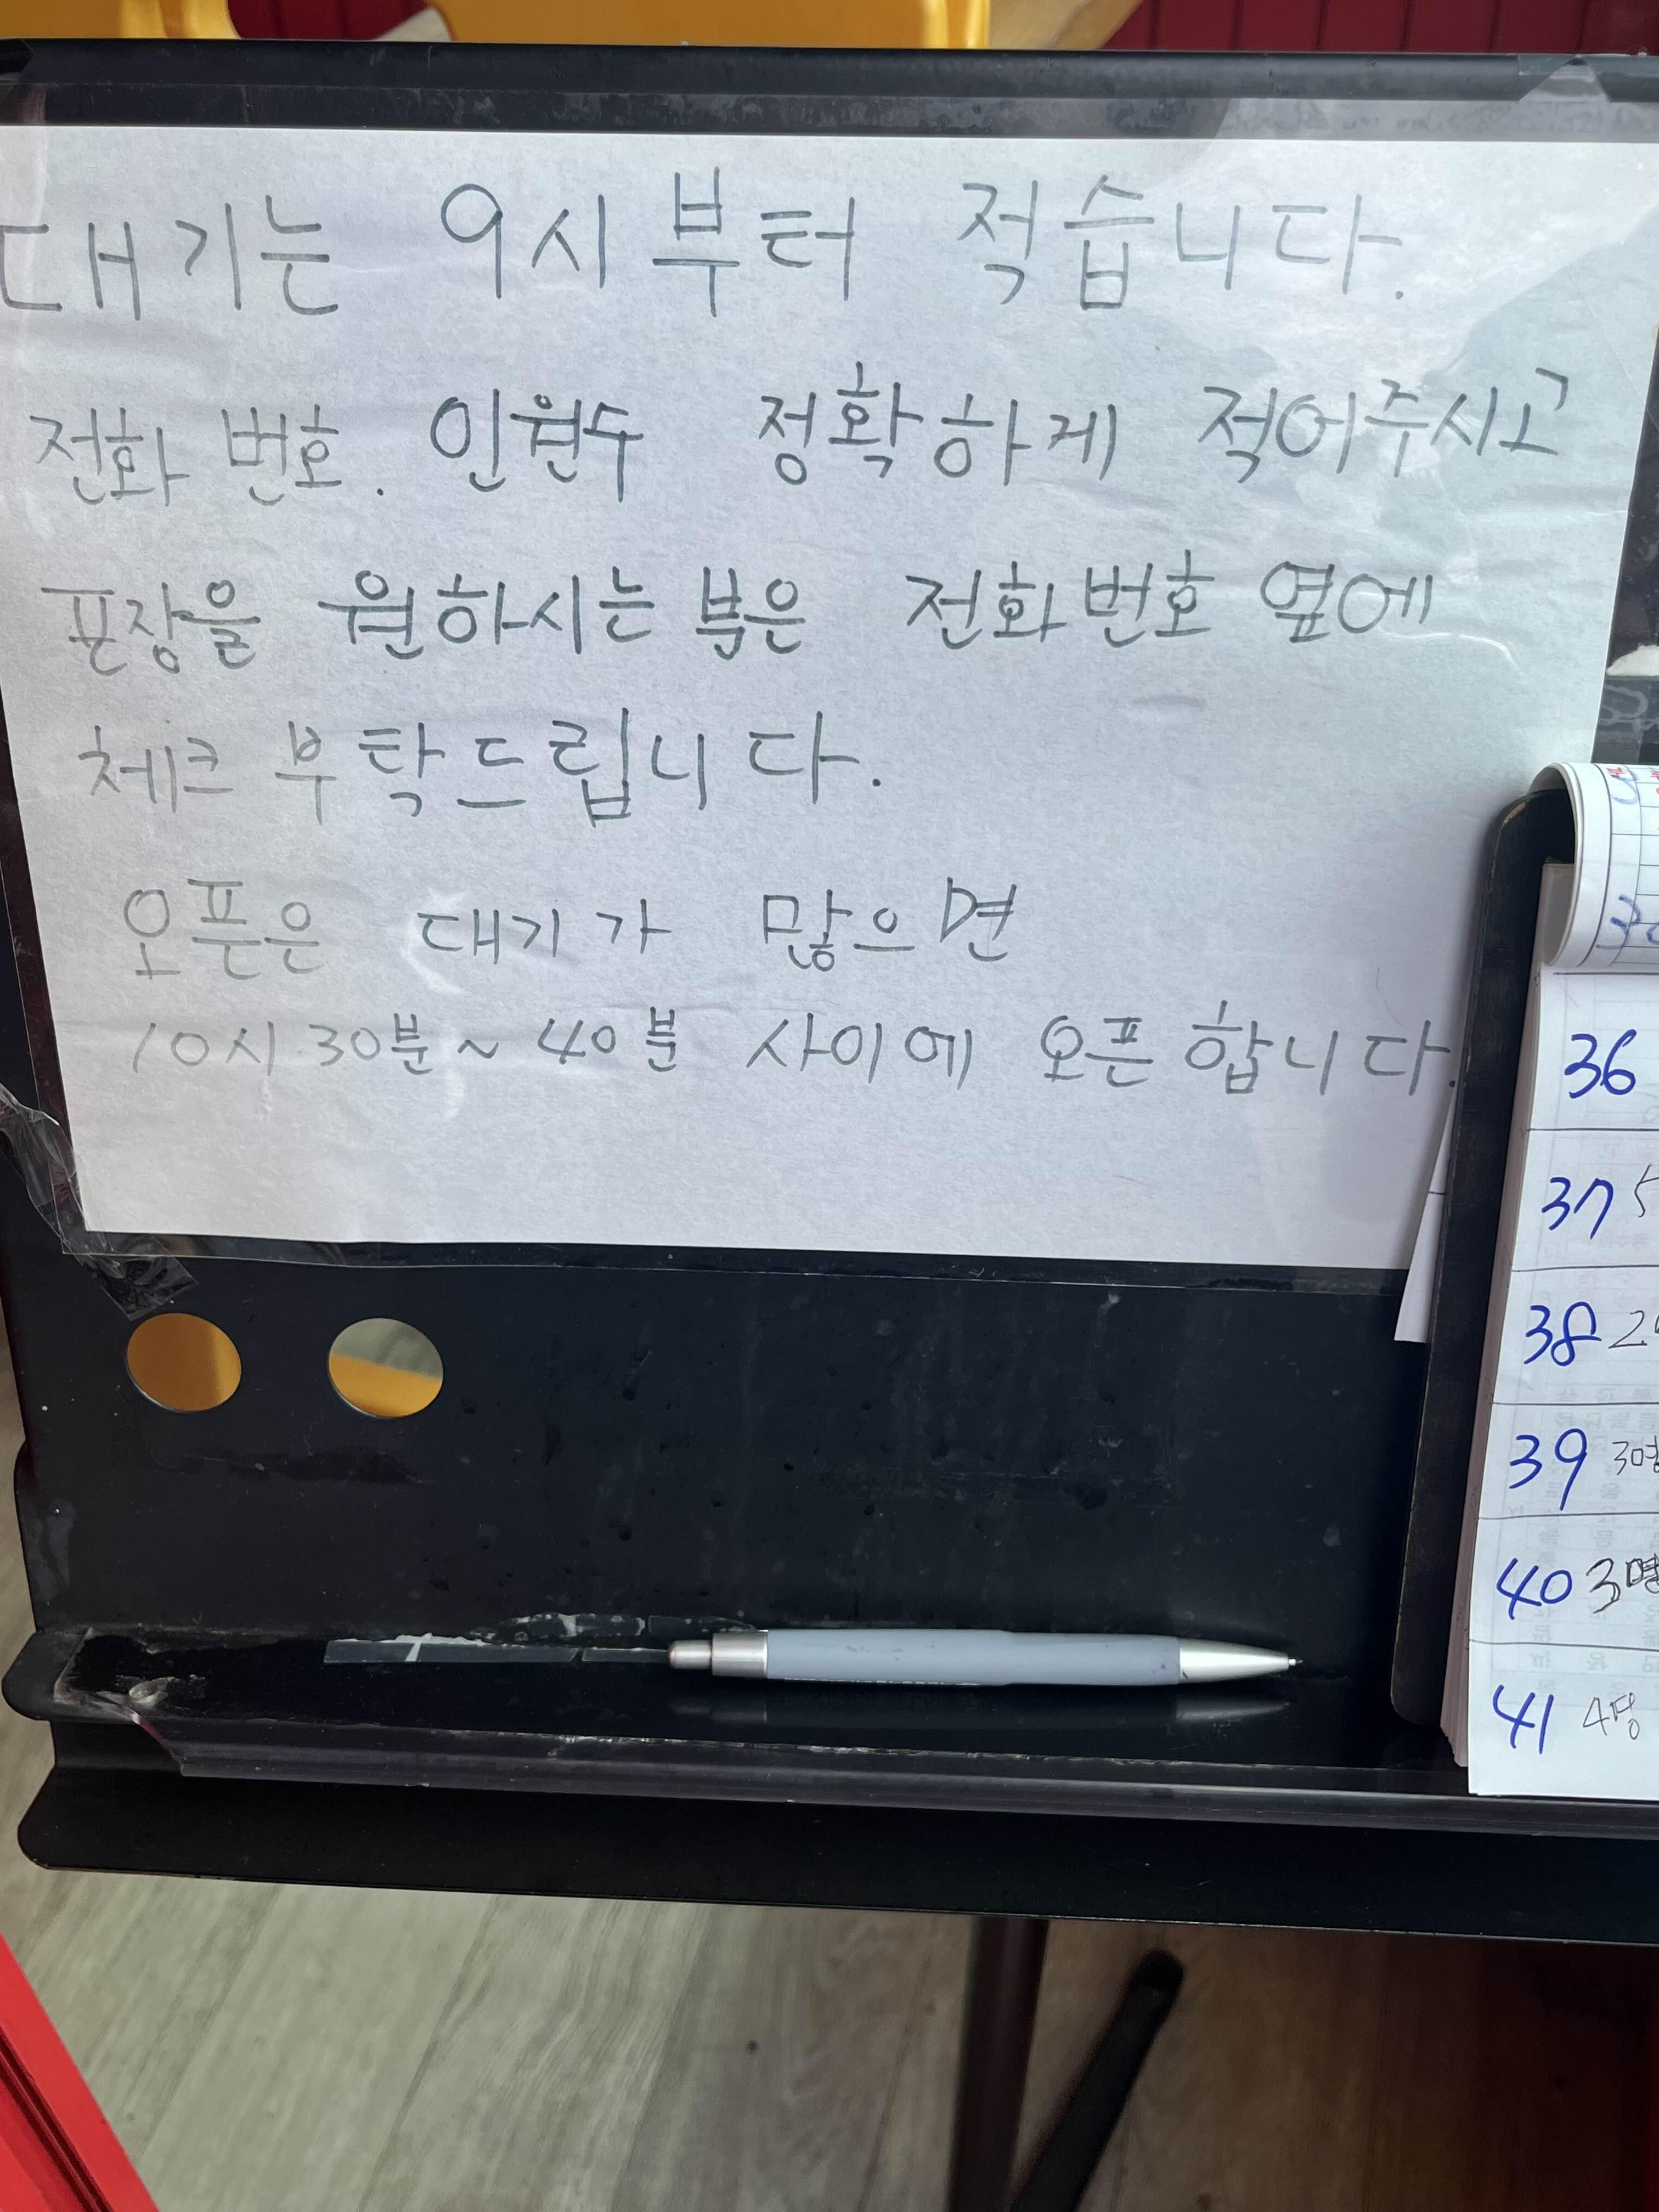 대기는 9시부터 적습니다.
전화 번호. 인원수 정확하게 적어주시고
포장을 원하시는 분은 전화번호 옆에
체크 부탁드립니다.
오픈은 대기가 많으면
10시 30분 ~ 40분 사이에 오픈합니다.
36
37 5
38 2
39 3명
40 3명
41 4명